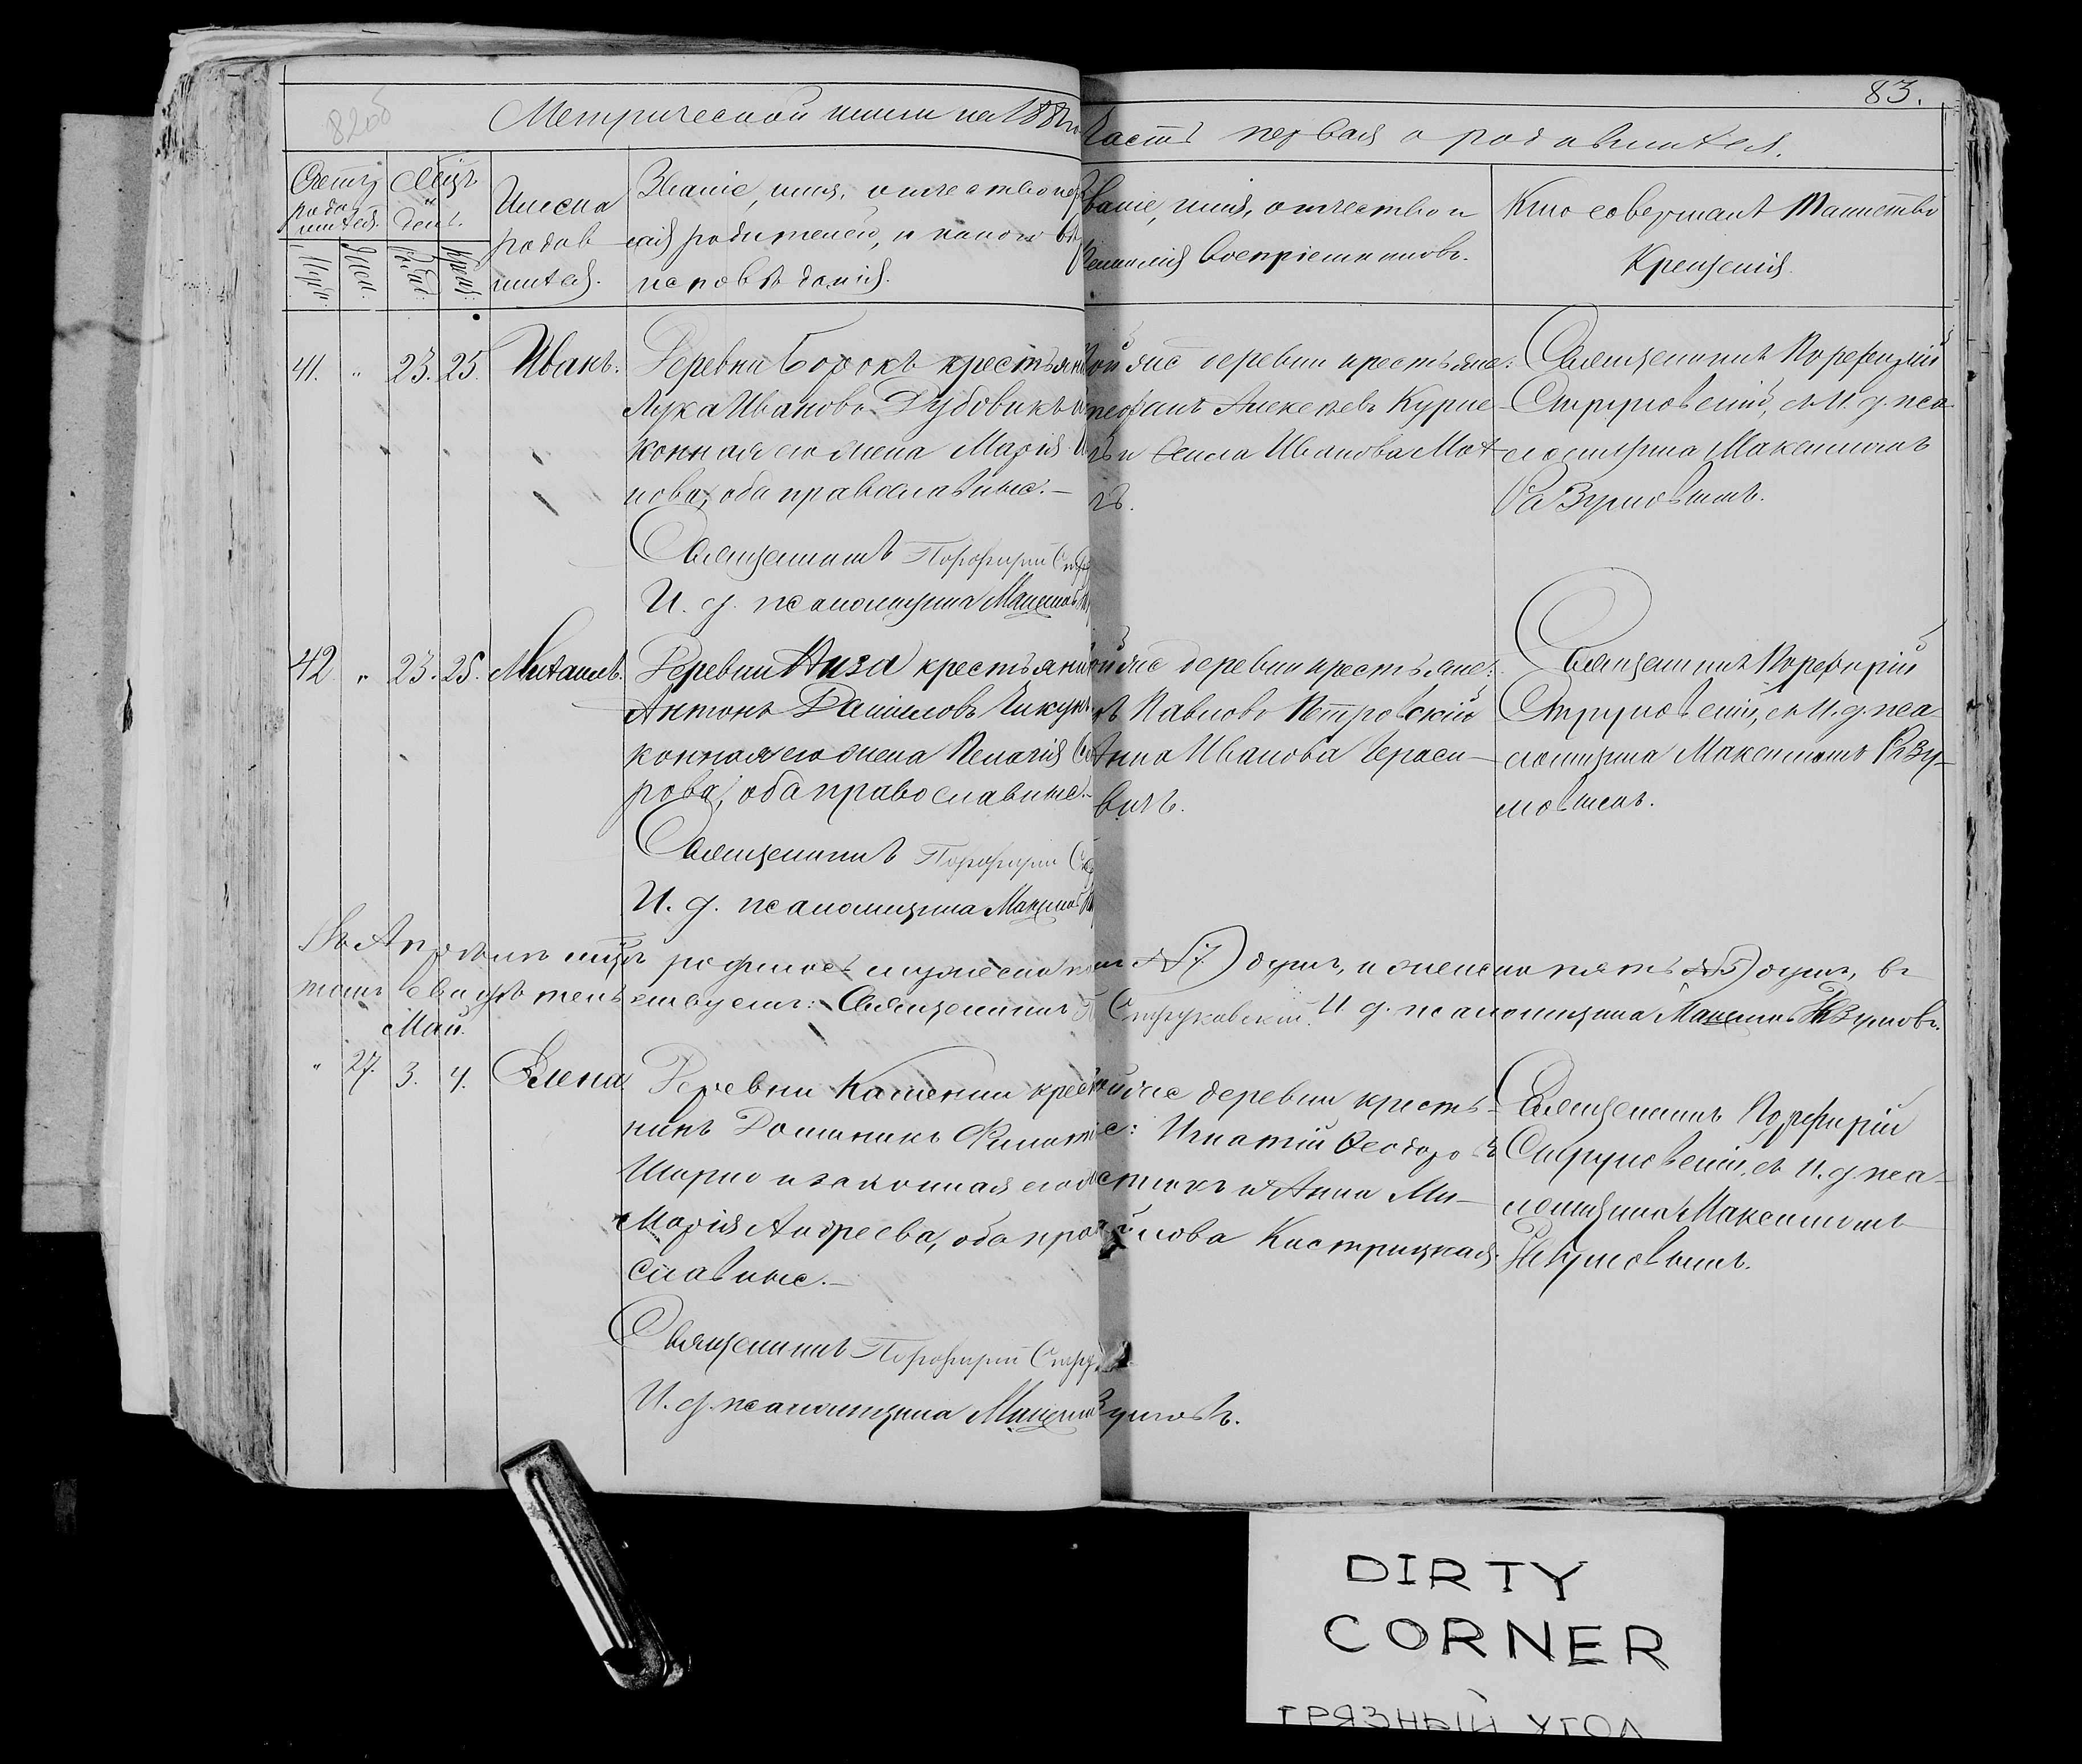 82об
83.
Метрической книги на 188
Часть первая о родившихся.
Счетъ родившихся.
Мѣсяцъ и день.
Муж.
Жен.
Рожд.
Крещ.
Имена родившихся.
Званіе, имя, отчество
родителей, и какого вѣ
исповѣданія.
Званіе, имя, отчество и
фамилія воспріемниковъ.
Кто совершалъ таинство
Крещенія.
41. " 23. 25. Иванъ.
Деревни Борокъ крестьянин
Лука Ивановъ Дубовикъ и
конная его жена Марія
нова, оба православные.—
Священникъ Порфирій
И. д. псаломщика Максимъ
той же деревни крестьяне:
Алексѣевъ
и Ивановна
Священникъ Порфирій
Струковскій, съ И. д. пса-
ломщика Максимомъ
Разумовымъ.
42. " 23. 25. Михаилъ.
Деревни крестьянин
Антонъ Даниловъ
конная его жена Пелагія
рова, оба православные.—
Священникъ Порфирій
И. д. псаломщика Максимъ
той же деревни крестьяне:
Павловъ Петровскій
Анна Иванова Гераси-
вичъ.
Священникъ Порфирій
Струковскій, съ И. д. пса-
ломщика Максимомъ Разу-
мовымъ.
Въ Апрѣлѣ мцѣ родилось мужеска пола (7) душъ, и женска пять (5) душъ, въ
томъ свидѣтельствуемъ: Священникъ П. Струковскій. И д. псаломщика Максимъ Разумовъ.
Май.
" 27. 3. 4. Елена
Деревни Каменки крестья
нинъ Доминикъ
и законная его
Марія Андреева, оба право
славные.—
Священникъ Порфирій Стру
И. д. псаломщика Максимъ Разумовъ.
той же деревни кресть-
яне: Игнатій Ѳеодоровъ
и Анна Ми-
хайлова Кастрицкая.
Священникъ Порфирій
Струковскій, съ И. д. пса-
ломщика Максимомъ
Разумовымъ.
DIRTY
CORNER
ГРЯЗНЫЙ УГОЛ